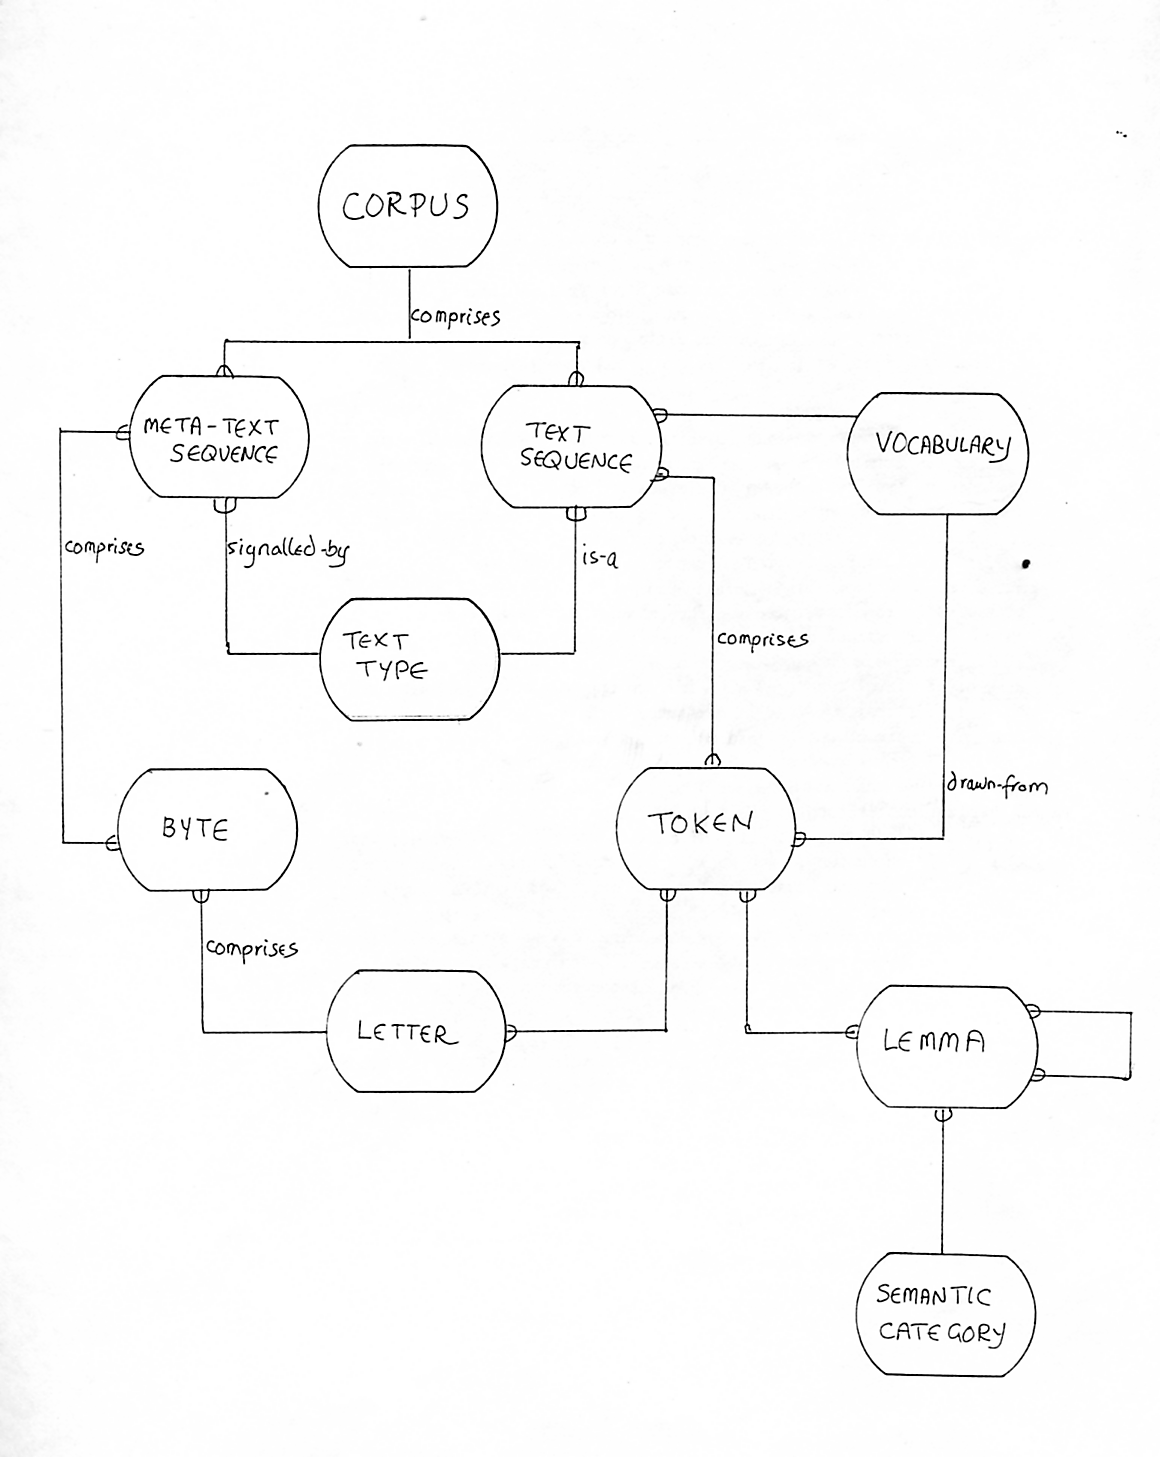 CORPUS
comprises
META-TEXT
SEQUENCE
TEXT
SEQUENCE
VOCABULARY
comprises
signalled-by
is-a
TEXT
TYPE
comprises
drawn-from
BYTE
TOKEN
comprises
LETTER
LEMMA
SEMANTIC
CATEGORY